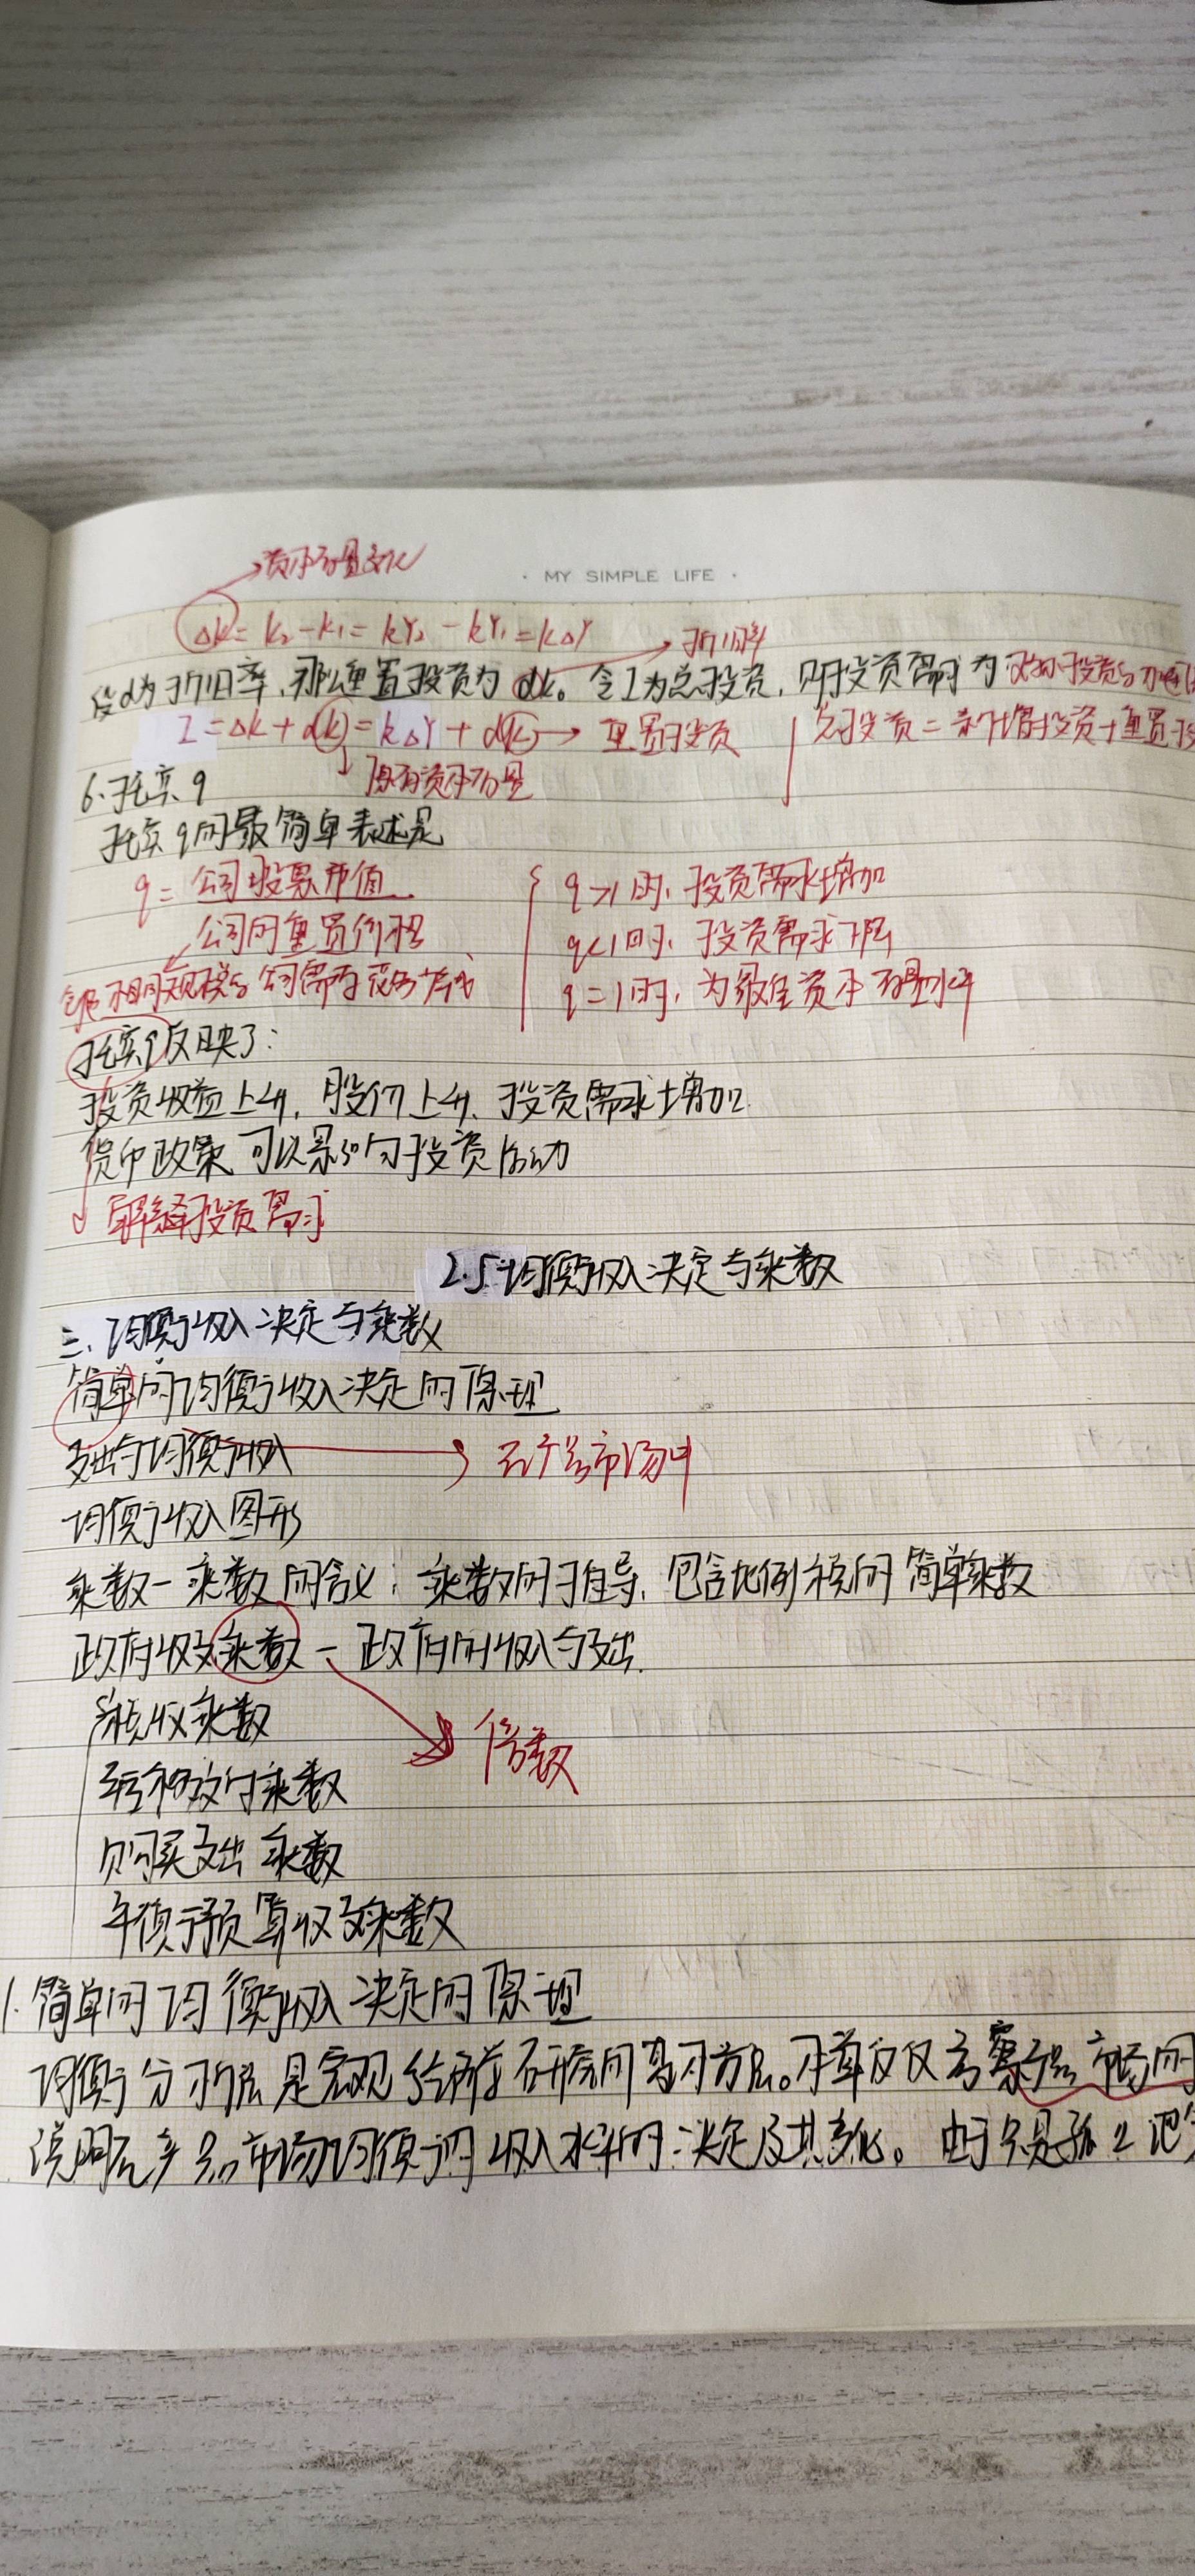 资本存量变化
· MY SIMPLE LIFE ·
Δk = k₂ - k₁ = kY₂ - kY₁ = kΔY
折旧率
设d为折旧率，那么重置投资为 dk。令I为总投资，则投资需求为
I = Δk + dk = kΔY + dk → 重置投资
总投资 = 新增投资 + 重置
原有资本存量
6. 托宾 q
托宾 q 的最简单表述是
q = 公司股票市值
公司的重置价格
q>1时，投资需求增加
q<1时，投资需求下降
q=1时，为最佳资本存量水平
相同规模 公司需要花多少钱
托宾q反映了：
投资收益上升，股价上升、投资需求增加
货币政策可以影响投资活动
解释投资需求
2.5 均衡收入决定与乘数
三、均衡收入决定与乘数
简单的均衡收入决定的原理
支出与均衡收入 → 在产品市场中
均衡收入图形
乘数 - 乘数的含义；乘数的推导，包含比例税的简单乘数
政府收支乘数 - 政府的收入与支出.
倍数
税收乘数
转移支付乘数
购买支出乘数
平衡预算收支乘数
1. 简单的均衡收入决定的原理
均衡分析法是宏观经济学研究的基本方法。本章仅仅考察产品市场的
说明在产品市场均衡时收入水平的决定及其变化。由于只是孤立地